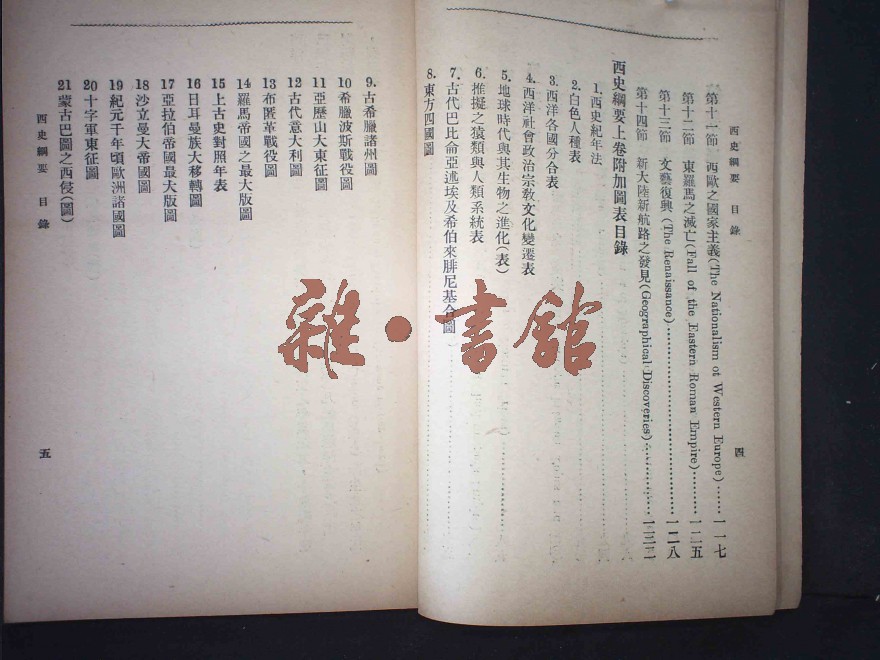 西史綱要 目錄
四
第十一節 西歐之國家主義(The Nationalism of Western Europe)……一一七
第十二節 東羅馬之滅亡(Fall of the Eastern Roman Empire)……一二五
第十三節 文藝復興(The Renaissance)……一二八
第十四節 新大陸新航路之發見(Geographical Discoveries)……一三二
西史綱要上卷附加圖表目錄
1. 西史紀年法
2. 白色人種表
3. 西洋各國分合表
4. 西洋社會政治宗教文化變遷表
5. 地球時代與其生物之進化(表)
6. 推擬之猿類與人類系統表
7. 古代巴比倫亞述埃及希伯來腓尼基合圖
8. 東方四國圖
9. 古希臘諸州圖
10 希臘波斯戰役圖
11 亞歷山大東征圖
12 古代意大利圖
13 布匿革戰役圖
14 羅馬帝國之最大版圖
15 上古史對照年表
16 日耳曼族大移轉圖
17 亞拉伯帝國最大版圖
18 沙立曼大帝國圖
19 紀元千年頃歐洲諸國圖
20 十字軍東征圖
21 蒙古巴圖之西侵(圖)
西史綱要 目錄
五
雜·書館